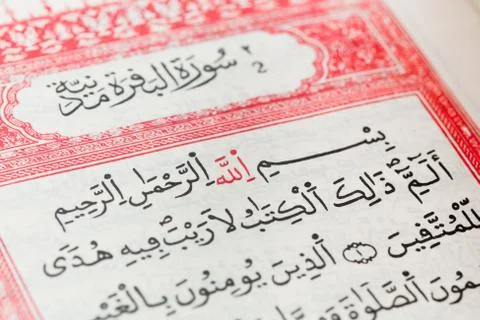 سُورَةُ البَقَرَةِ مَدَنِيَّة ٢ 2
بِسْمِ اللَّهِ الرَّحْمَٰنِ الرَّحِيمِ
أَلَمِّ ذَٰلِكَ الْكِتَٰبُ لَا رَيْبَ فِيهِ هُدًى
لِّلْمُتَّقِينَ ١ الَّذِينَ يُومِنُونَ بِالْغَيْبِ
الصَّلَوٰةَ